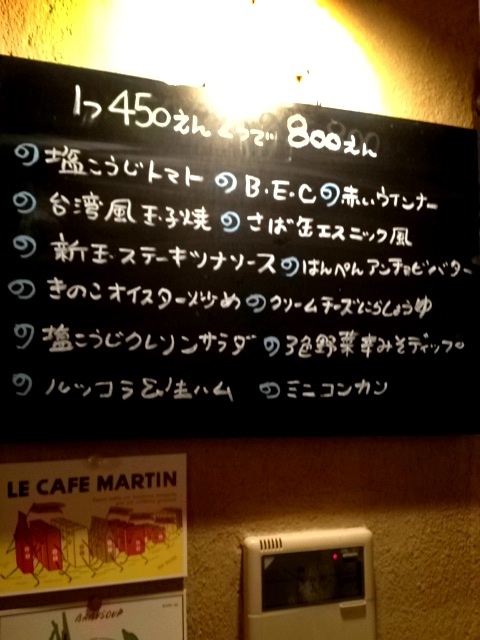 1つ450えん 2つで 800えん
塩こうじトマト B・E・C 赤いウインナー
台湾風玉子焼 さば缶エスニック風
新玉ステーキツナソース はんぺんアンチョビバター
きのこオイスター炒め クリームチーズにらしょうゆ
塩こうじクレソンサラダ 3色野菜辛みそディップ
ルッコラ&生ハム ミニコンカン
LE CAFE MARTIN